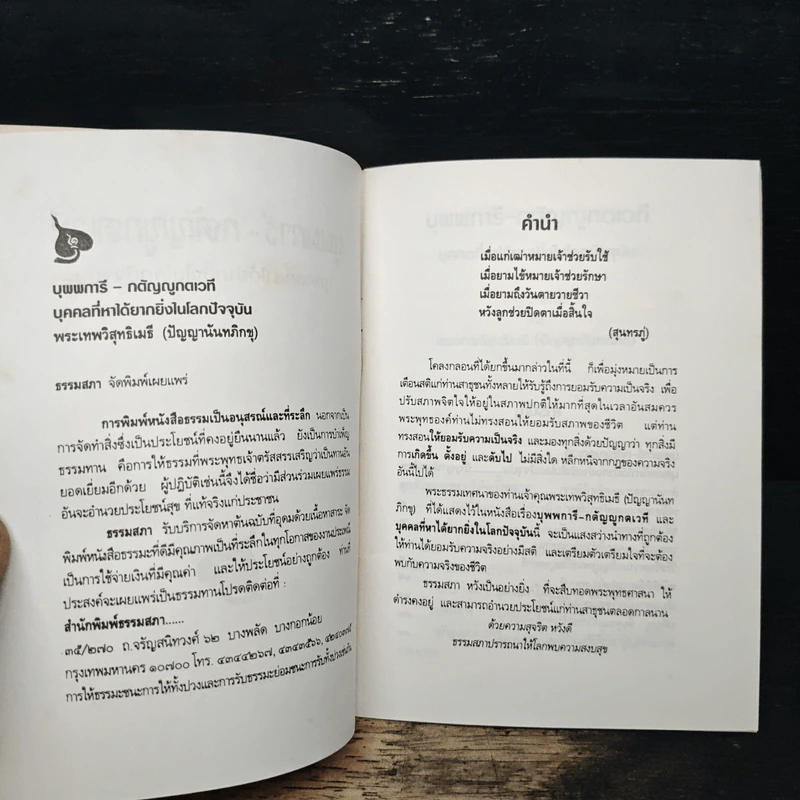 บุพพการี – กตัญญูกตเวที
บุคคลที่หาได้ยากยิ่งในโลกปัจจุบัน
พระเทพวิสุทธิเมธี (ปัญญานันทภิกขุ)
ธรรมสภา จัดพิมพ์เผยแพร่
การพิมพ์หนังสือธรรมเป็นอนุสรณ์และที่ระลึก นอกจากเป็น
การจัดทำสิ่งซึ่งเป็นประโยชน์ที่คงอยู่ยืนนานแล้ว ยังเป็นการบำเพ็ญ
ธรรมทาน คือการให้ธรรมที่พระพุทธเจ้าตรัสสรรเสริญว่าเป็นทานอัน
ยอดเยี่ยมอีกด้วย ผู้ปฏิบัติเช่นนี้จึงได้ชื่อว่ามีส่วนร่วมเผยแพร่ธรรม
อันจะอำนวยประโยชน์สุข ที่แท้จริงแก่ประชาชน
ธรรมสภา รับบริการจัดหาต้นฉบับที่อุดมด้วยเนื้อหาสาระ จัด
พิมพ์หนังสือธรรมะที่ดีมีคุณภาพเป็นที่ระลึกในทุกโอกาสของงานประเพณี
เป็นการใช้จ่ายเงินที่มีคุณค่า และให้ประโยชน์อย่างถูกต้อง ท่านที่
ประสงค์จะเผยแพร่เป็นธรรมทานโปรดติดต่อที่ :
สำนักพิมพ์ธรรมสภา......
๓๕/๒๗๐ ถ.จรัญสนิทวงศ์ ๖๒ บางพลัด บางกอกน้อย
กรุงเทพมหานคร ๑๐๗๐๐ โทร. ๔๓๔๔๒๖๗, ๔๓๔๓๕๖๖,
การให้ธรรมะชนะการให้ทั้งปวงและการรับธรรมะย่อมชนะการรับทั้งปวงเช่นกัน
คำนำ
เมื่อแก่เฒ่าหมายเจ้าช่วยรับใช้
เมื่อยามไข้หมายเจ้าช่วยรักษา
เมื่อยามถึงวันตายวายชีวา
หวังลูกช่วยปิดตาเมื่อสิ้นใจ
(สุนทรภู่)
โคลงกลอนที่ได้ยกขึ้นมากล่าวในที่นี้ ก็เพื่อมุ่งหมายเป็นการ
เตือนสติแก่ท่านสาธุชนทั้งหลายให้รับรู้ถึงการยอมรับความเป็นจริง เพื่อ
ปรับสภาพจิตใจให้อยู่ในสภาพปกติให้มากที่สุดในเวลาอันสมควร
พระพุทธองค์ท่านไม่ทรงสอนให้ยอมรับสภาพของชีวิต แต่ท่าน
ทรงสอนให้ยอมรับความเป็นจริง และมองทุกสิ่งด้วยปัญญาว่า ทุกสิ่งมี
การเกิดขึ้น ตั้งอยู่ และดับไป ไม่มีสิ่งใด หลีกหนีจากกฎของความจริง
อันนี้ไปได้
พระธรรมเทศนาของท่านเจ้าคุณพระเทพวิสุทธิเมธี (ปัญญานันท
ภิกขุ) ที่ได้แสดงไว้ในหนังสือเรื่องบุพพการี-กตัญญูกตเวที และ
บุคคลที่หาได้ยากยิ่งในโลกปัจจุบันนี้ จะเป็นแสงสว่างนำทางที่ถูกต้อง
ให้ท่านได้ยอมรับความจริงอย่างมีสติ และเตรียมตัวเตรียมใจที่จะต้อง
พบกับความจริงของชีวิต
ธรรมสภา หวังเป็นอย่างยิ่ง ที่จะสืบทอดพระพุทธศาสนา ให้
ดำรงคงอยู่ และสามารถอำนวยประโยชน์แก่ท่านสาธุชนตลอดกาลนาน
ด้วยความสุจริต หวังดี
ธรรมสภาปรารถนาให้โลกพบความสงบสุข